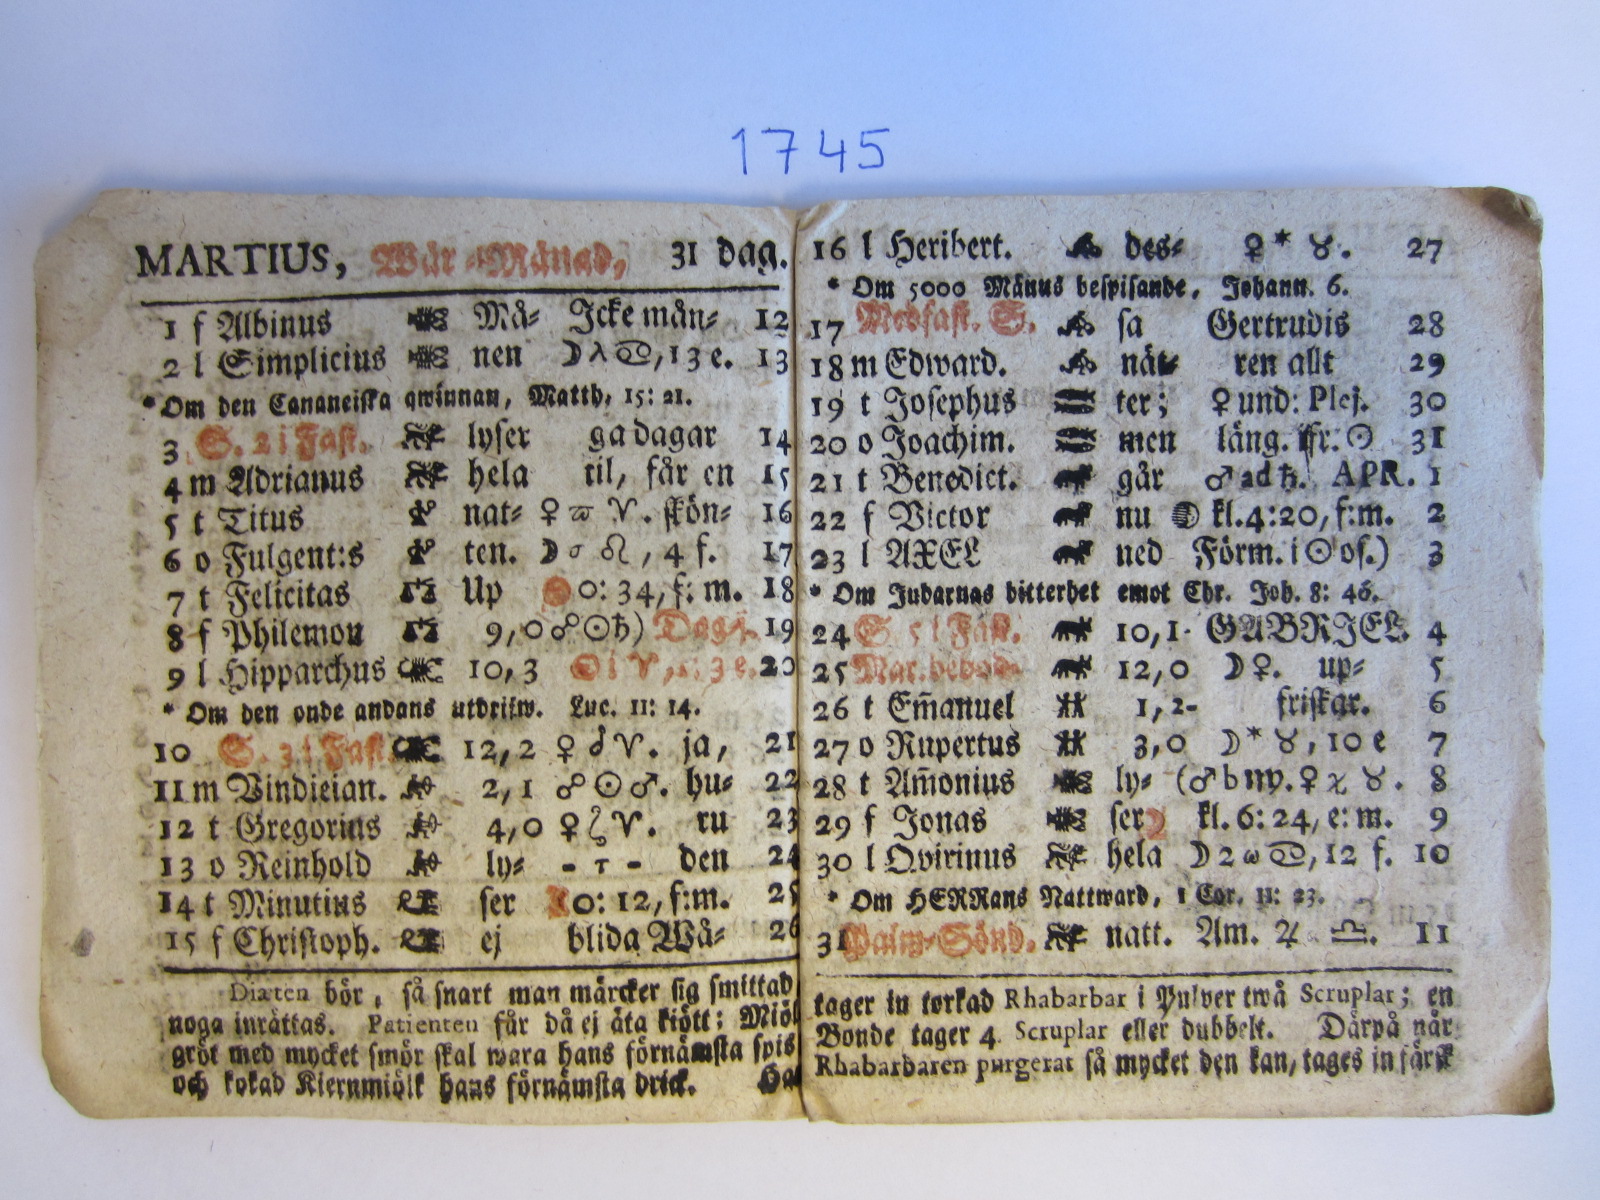 1745
MARTIUS, Wår-Månad, 31 dag.
1 f Albinus Må- Icke mån- 12
2 l Simplicius nen ☽ λ ♋, 13 e. 13
* Om den Cananeiska qwinnan, Matth. 15: 21.
3 S. 2 i Fast. lyser ga dagar 14
4 m Adrianus hela til, får en 15
5 t Titus nat- ♀ ϖ ♈. skön- 16
6 o Fulgent:s ten. ☽ σ ♌, 4 f. 17
7 t Felicitas Up 0: 34, f: m. 18
8 f Philemon 9, 0 ☍ ☉ ♄) Dag j. 19
9 l Hipparchus 10, 3 ☉ i ♈, 3 e. 20
* Om den onde andans utdrifw. Luc. 11: 14.
10 S. 3 i Fast. 12, 2 ♀ ♂ ♈. ja, 21
11 m Vindician. 2, 1 ☍ ☉ ♂. hu- 22
12 t Gregorius 4, 0 ♀ ζ ♈. ru 23
13 o Reinhold ly- - τ - den 24
14 t Minutius ser 0: 12, f:m. 25
15 f Christoph. ej blida Wä- 26
Diæten bör, så snart man märcker sig smittad
noga inrättas. Patienten får då ej äta kiött; Miöl
gröt med mycket smör skal wara hans förnämsta spis
och kokad Kiernmiölk hans förnämsta drick. Ha
16 l Heribert. des- ♀ * ♉. 27
* Om 5000 Männs bespisande, Johann. 6.
17 Midfast. S. sa Gertrudis 28
18 m Edward. nät- ren allt 29
19 t Josephus ter; ♀ und: Plej. 30
20 o Joachim. men läng. ifr. ☉ 31
21 t Benedict. går ♂ ad ♄. APR. 1
22 f Victor nu kl. 4: 20, f:m. 2
23 l AXEL ned Förm. i ☉ os.) 3
* Om Judarnas bitterhet emot Chr. Joh. 8: 46.
24 S. 5 i Fast. 10, 1. GABRIEL. 4
25 Mar. bebod. 12, 0 ☽ ♀. up- 5
26 t Em̃anuel 1, 2- friskar. 6
27 o Rupertus 3, 0 ☽ * ♉, 10 e 7
28 t Am̃onius ly- (♂ b ♍. ♀ χ ♉. 8
29 f Jonas ser kl. 6: 24, e: m. 9
30 l Qvirinus hela ☽ 2 ω ♋, 12 f. 10
* Om HERRans Nattward, 1 Cor. 11: 23.
31 Palm-Sönd. natt. Am. ♃ ♎. 11
tager in torkad Rhabarbar i Pulver twå Scruplar; en
Bonde tager 4 Scruplar eller dubbelt. Därpå når
Rhabarbaren purgerat så mycket den kan, tages in färsk